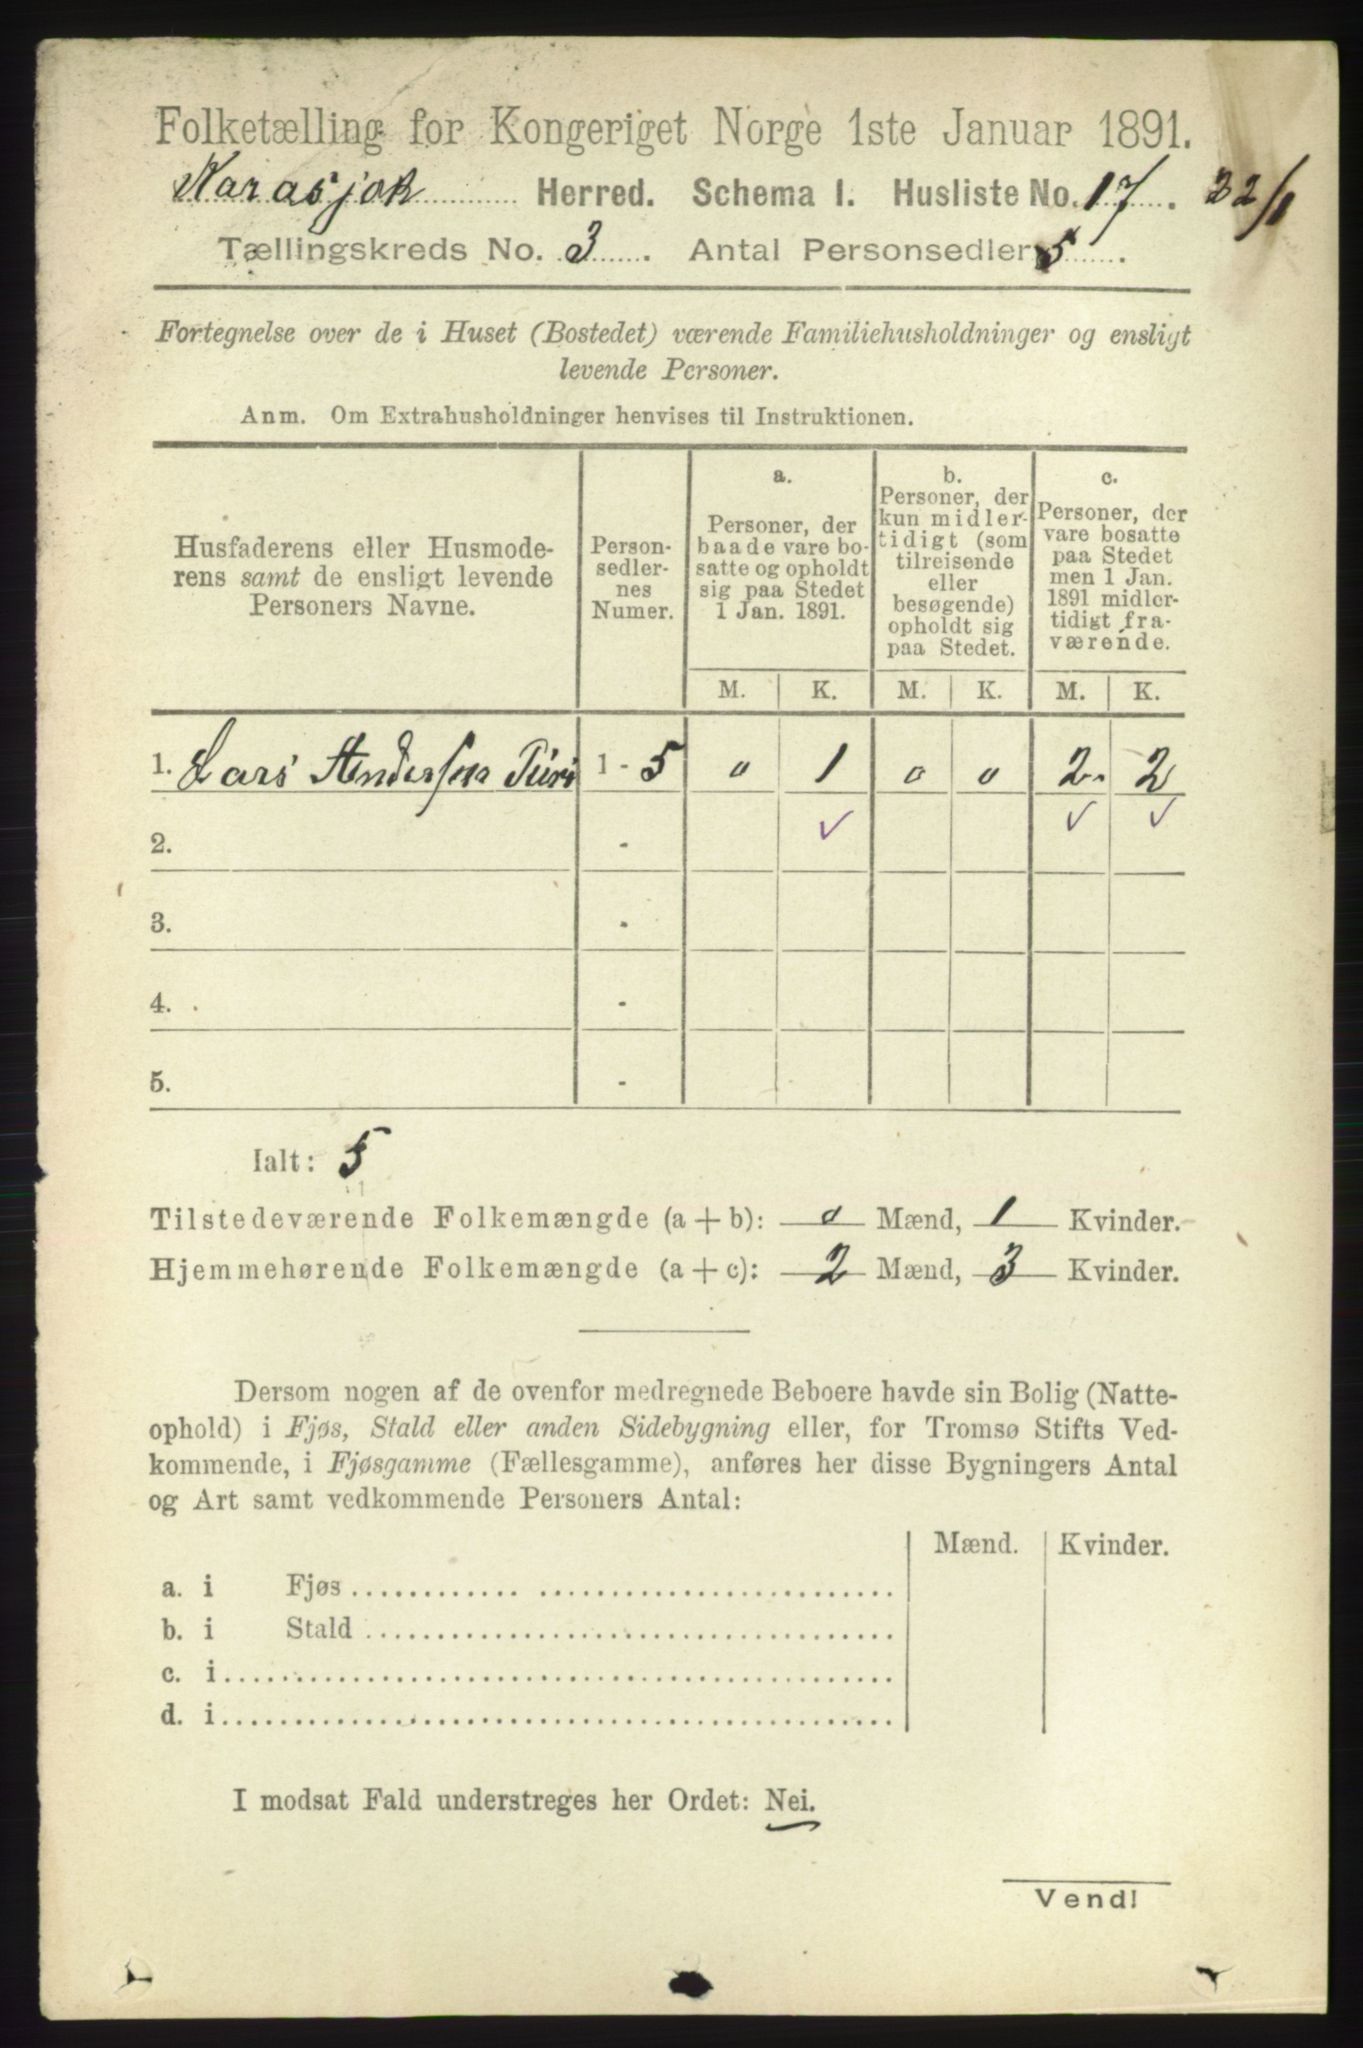 Folketælling for Kongeriget Norge 1ste Januar 1891.
Karasjok Herred. Schema I. Husliste No. 17. 32/1
Tællingskreds No. 3. Antal Personsedler 5.
Fortegnelse over de i Huset (Bostedet) værende Familiehusholdninger og ensligt
levende Personer.
Anm. Om Extrahusholdninger henvises til Instruktionen.
Husfaderens eller Husmode-
rens samt de ensligt levende
Personers Navne.
Person-
sedler-
nes
Numer.
a.
Personer, der
baade vare bo-
satte og opholdt
sig paa Stedet
1 Jan. 1891.
b.
Personer, der
kun midler-
tidigt (som
tilreisende
eller
besøgende)
opholdt sig
paa Stedet.
c.
Personer, der
vare bosatte
paa Stedet
men 1 Jan.
1891 midler-
tidigt fra-
værende.
M. K. M. K. M. K.
1. Lars Andersen 1 - 5 0 1 0 0 2 2
✓ ✓ ✓
2. -
3. -
4. -
5. -
Ialt: 5
Tilstedeværende Folkemængde (a + b): 0 Mænd, 1 Kvinder.
Hjemmehørende Folkemængde (a + c): 2 Mænd, 3 Kvinder.
Dersom nogen af de ovenfor medregnede Beboere havde sin Bolig (Natte-
ophold) i Fjøs, Stald eller anden Sidebygning eller, for Tromsø Stifts Ved-
kommende, i Fjøsgamme (Fællesgamme), anføres her disse Bygningers Antal
og Art samt vedkommende Personers Antal:
Mænd. Kvinder.
a. i Fjøs
b. i Stald
c. i
d. i
I modsat Fald understreges her Ordet: Nei.
Vend!